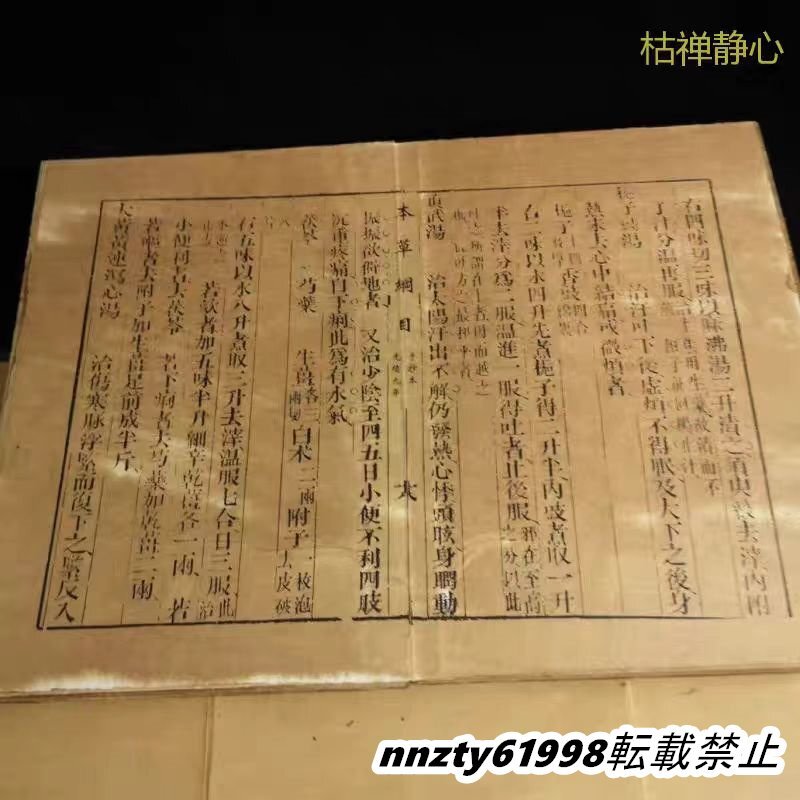 枯禅静心
右四味切三味以麻沸湯二升漬之須臾絞去滓內附
子汁分溫再服
梔子豉湯 治汗吐下後虛煩不得眠及大下之後身
熱未去心中結痛或微煩者
梔子 十四 香豉 四合
右二味以水四升先煮梔子得二升半內豉煮取一升
半去滓分為二服溫進一服得吐者止後服
真武湯 治太陽汗出不解仍發熱心悸頭眩身瞤動
本草綱目
手抄本
光緒九年
振振欲擗地者 又治少陰至四五日小便不利四肢
沉重疼痛自下痢此為有水氣
茯苓 芍藥 生薑各三兩切 白朮二兩 附子一枚泡去皮破
八片
右五味以水八升煮取三升去滓溫服七合日三服此
若欬者加五味半升細辛乾薑各一兩、若
小便利者去茯苓 若下痢者去芍藥加乾薑二兩、
若嘔者去附子加生薑足前成半斤
大黃黃連瀉心湯 治傷寒脉浮緊而復下之緊反入
nnzty61998転載禁止